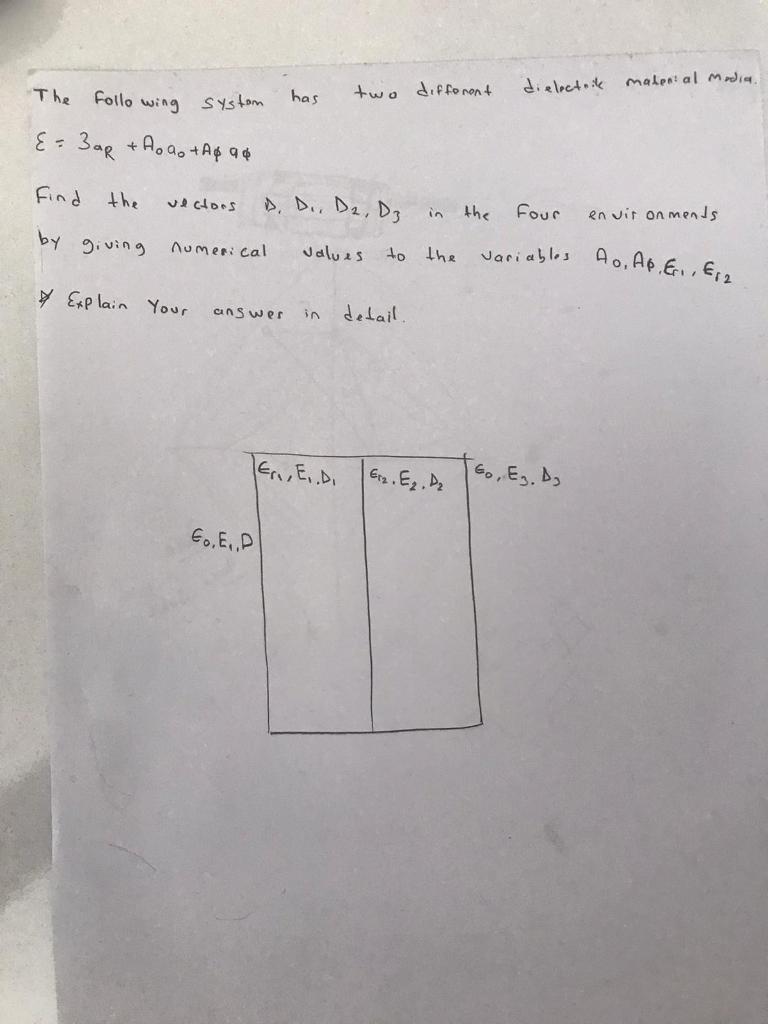 The following system has two different dielectrik material media.
E = 3aR + A0a0 + Aϕ aϕ
Find the vectors D, D1, D2, D3 in the four environments
by giving numerical values to the variables A0, Aϕ, Er1, Er2
Explain Your answer in detail.
Er1, E1, D1 Er2, E2, D2 E0, E3, D3
E0, E1, D